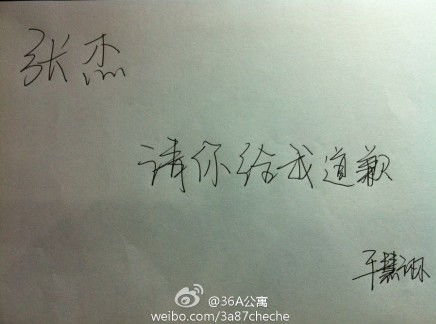 张杰
请你给我道歉
@36A公寓
weibo.com/3a87cheche